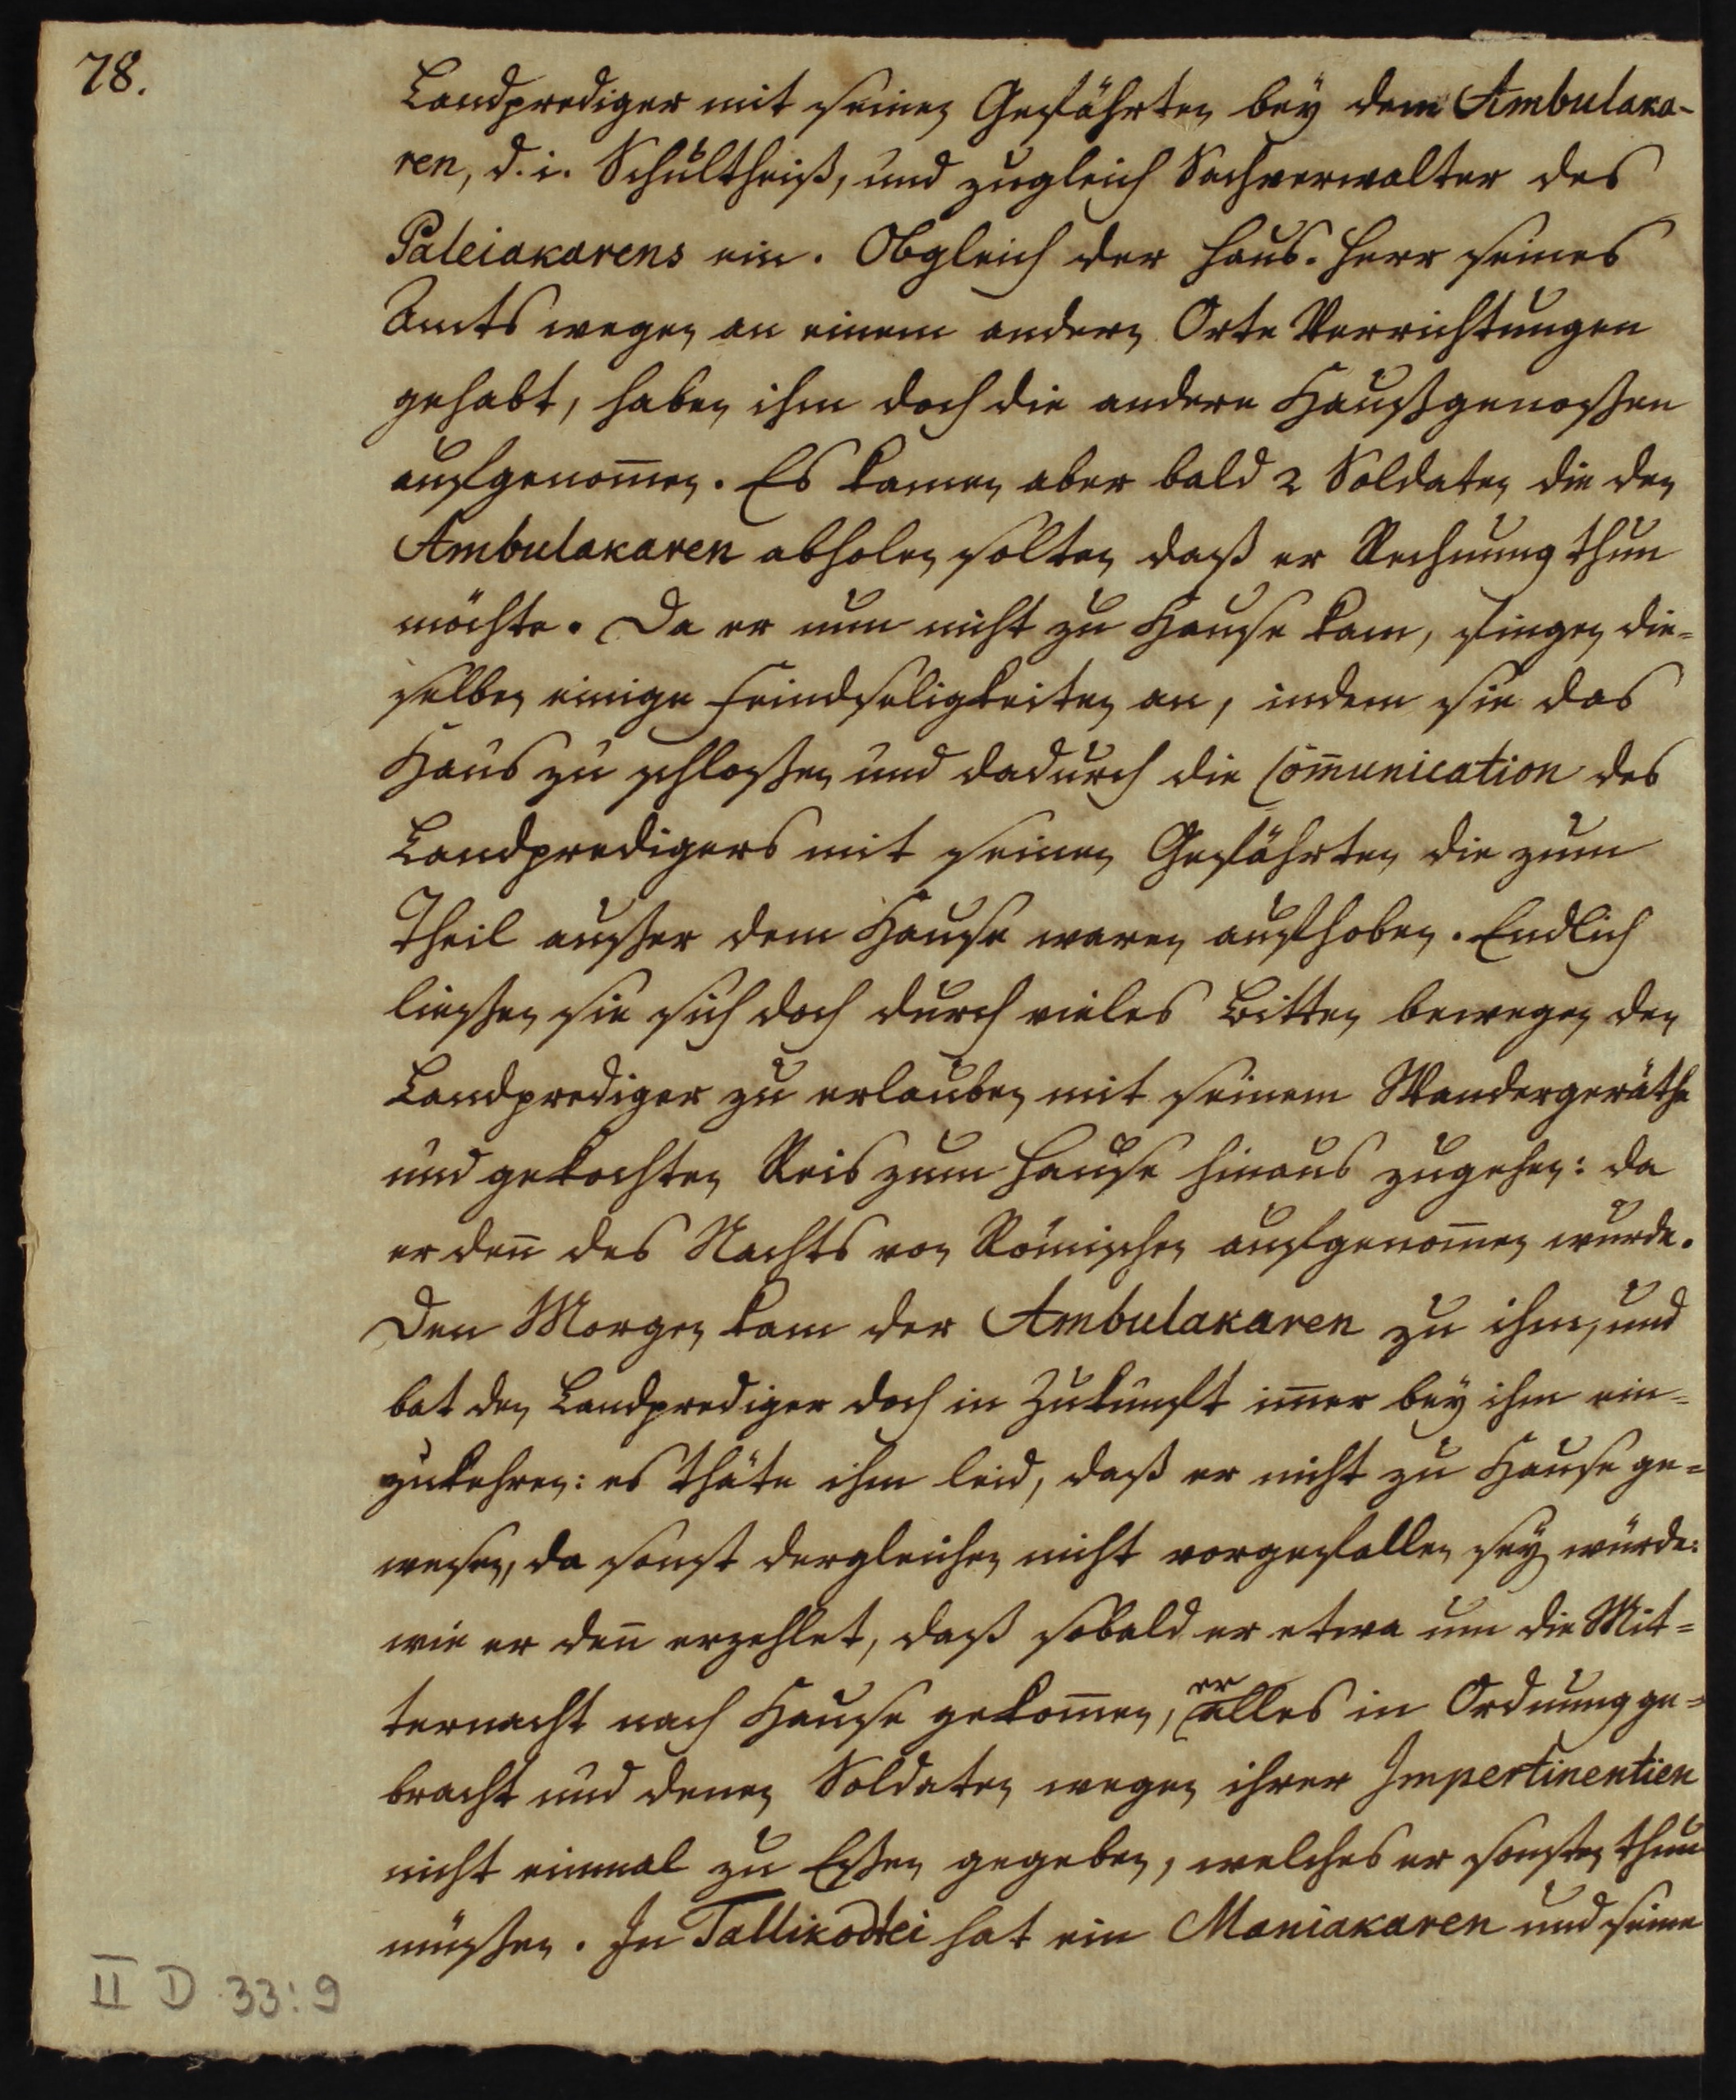 78.
Landprediger mit seinen Gefährten bey dem Ambulaka-
ren, d. i. Schultheiß, und zugleich Sachverwalter des
Paleiakarens ein. Obgleich der Haus-Herr seines
Amts wegen an einem andern Orte Verrichtungen
gehabt, haben ihm doch die andere Haußgenoßen
aufgenom̅en. Es kamen aber bald 2 Soldaten die den
Ambulakaren abholen solten daß er Rechnung thun
möchte. Da er nun nicht zu Hause kam, fingen die=
selben einige Feindseligkeiten an, indem sie das
Haus zu schloßen und dadurch die Com̅unication des
Landpredigers mit seinen Gefährten die zum
Theil außer dem Hause waren aufhoben. Endlich
ließen sie sich doch durch vieles Bitten bewegen den
Landprediger zu erlauben mit seinem Wandergeräthe
und gekochten Reis zum Hause hinaus zugehen: da
er den̅ des Nachts von Römischen aufgenom̅en wurde.
Den Morgen kam der Ambulakaren zu ihm, und
bat den Landprediger doch in Zukunft im̅er bey ihm ein=
zukehren: es thäte ihm leid, daß er nicht zu Hause ge=
wesen, da sonst dergleichen nicht vorgefallen seyn würde:
wie er den̅ erzehlet, daß sobald er etwa um die Mit=
ternacht nach Hause gekom̅en, er alles in Ordnung ge=
bracht und denen Soldaten wegen ihrer Impertinentien
nicht einmal zu Eßen gegeben, welches er sonsten thun
müßen. In Tallikodtei hat ein Maniakaren und seine
II D 33:9